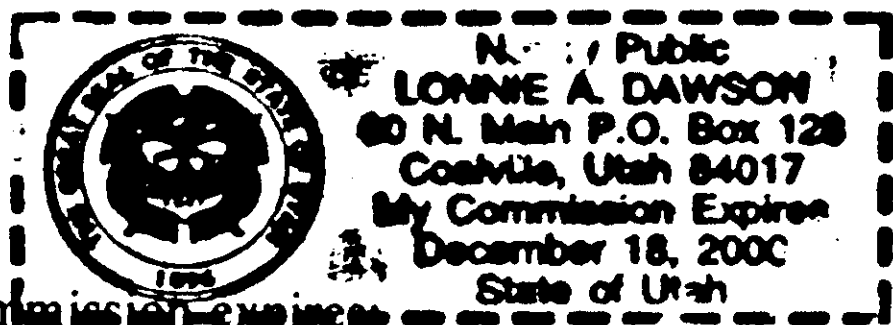 THE GREAT SEAL OF THE STATE OF UTAH
1896
Public
LONNIE A. DAWSON
N. Main P.O. Box 128
Coalville, Utah 84017
My Commission Expires
December 18, 2000
State of Utah
commission expires